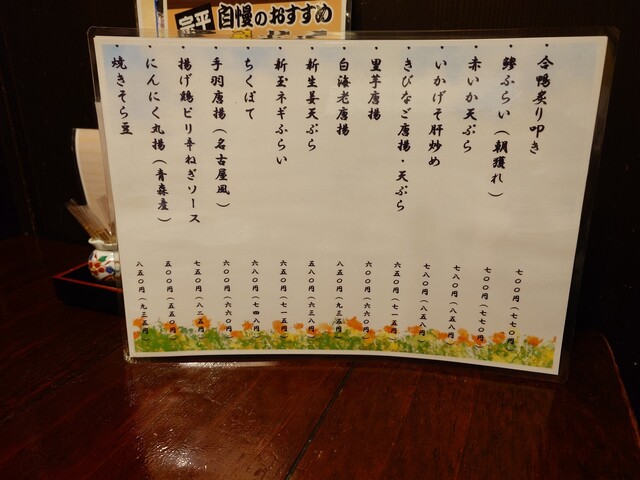 宗平 自慢のおすすめ
・合鴨炙り叩き 七〇〇円(七七〇円)
・鯵ふらい(朝獲れ) 七〇〇円(七七〇円)
・赤いか天ぷら 七八〇円(八五八円)
・いかげそ肝炒め 七八〇円(八五八円)
・きびなご唐揚・天ぷら 六五〇円(七一五円)
・里芋唐揚 六〇〇円(六六〇円)
・白海老唐揚 八五〇円(九三五円)
・新生姜天ぷら 五八〇円(六三八円)
・新玉ネギふらい 六五〇円(七一五円)
・ちくぽて 六八〇円(七四八円)
・手羽唐揚(名古屋風) 六〇〇円(六六〇円)
・揚げ鶏ピリ辛ねぎソース 七五〇円(八二五円)
・にんにく丸揚(青森産) 五〇〇円(五五〇円)
・焼きそら豆 八五〇円(九三五円)